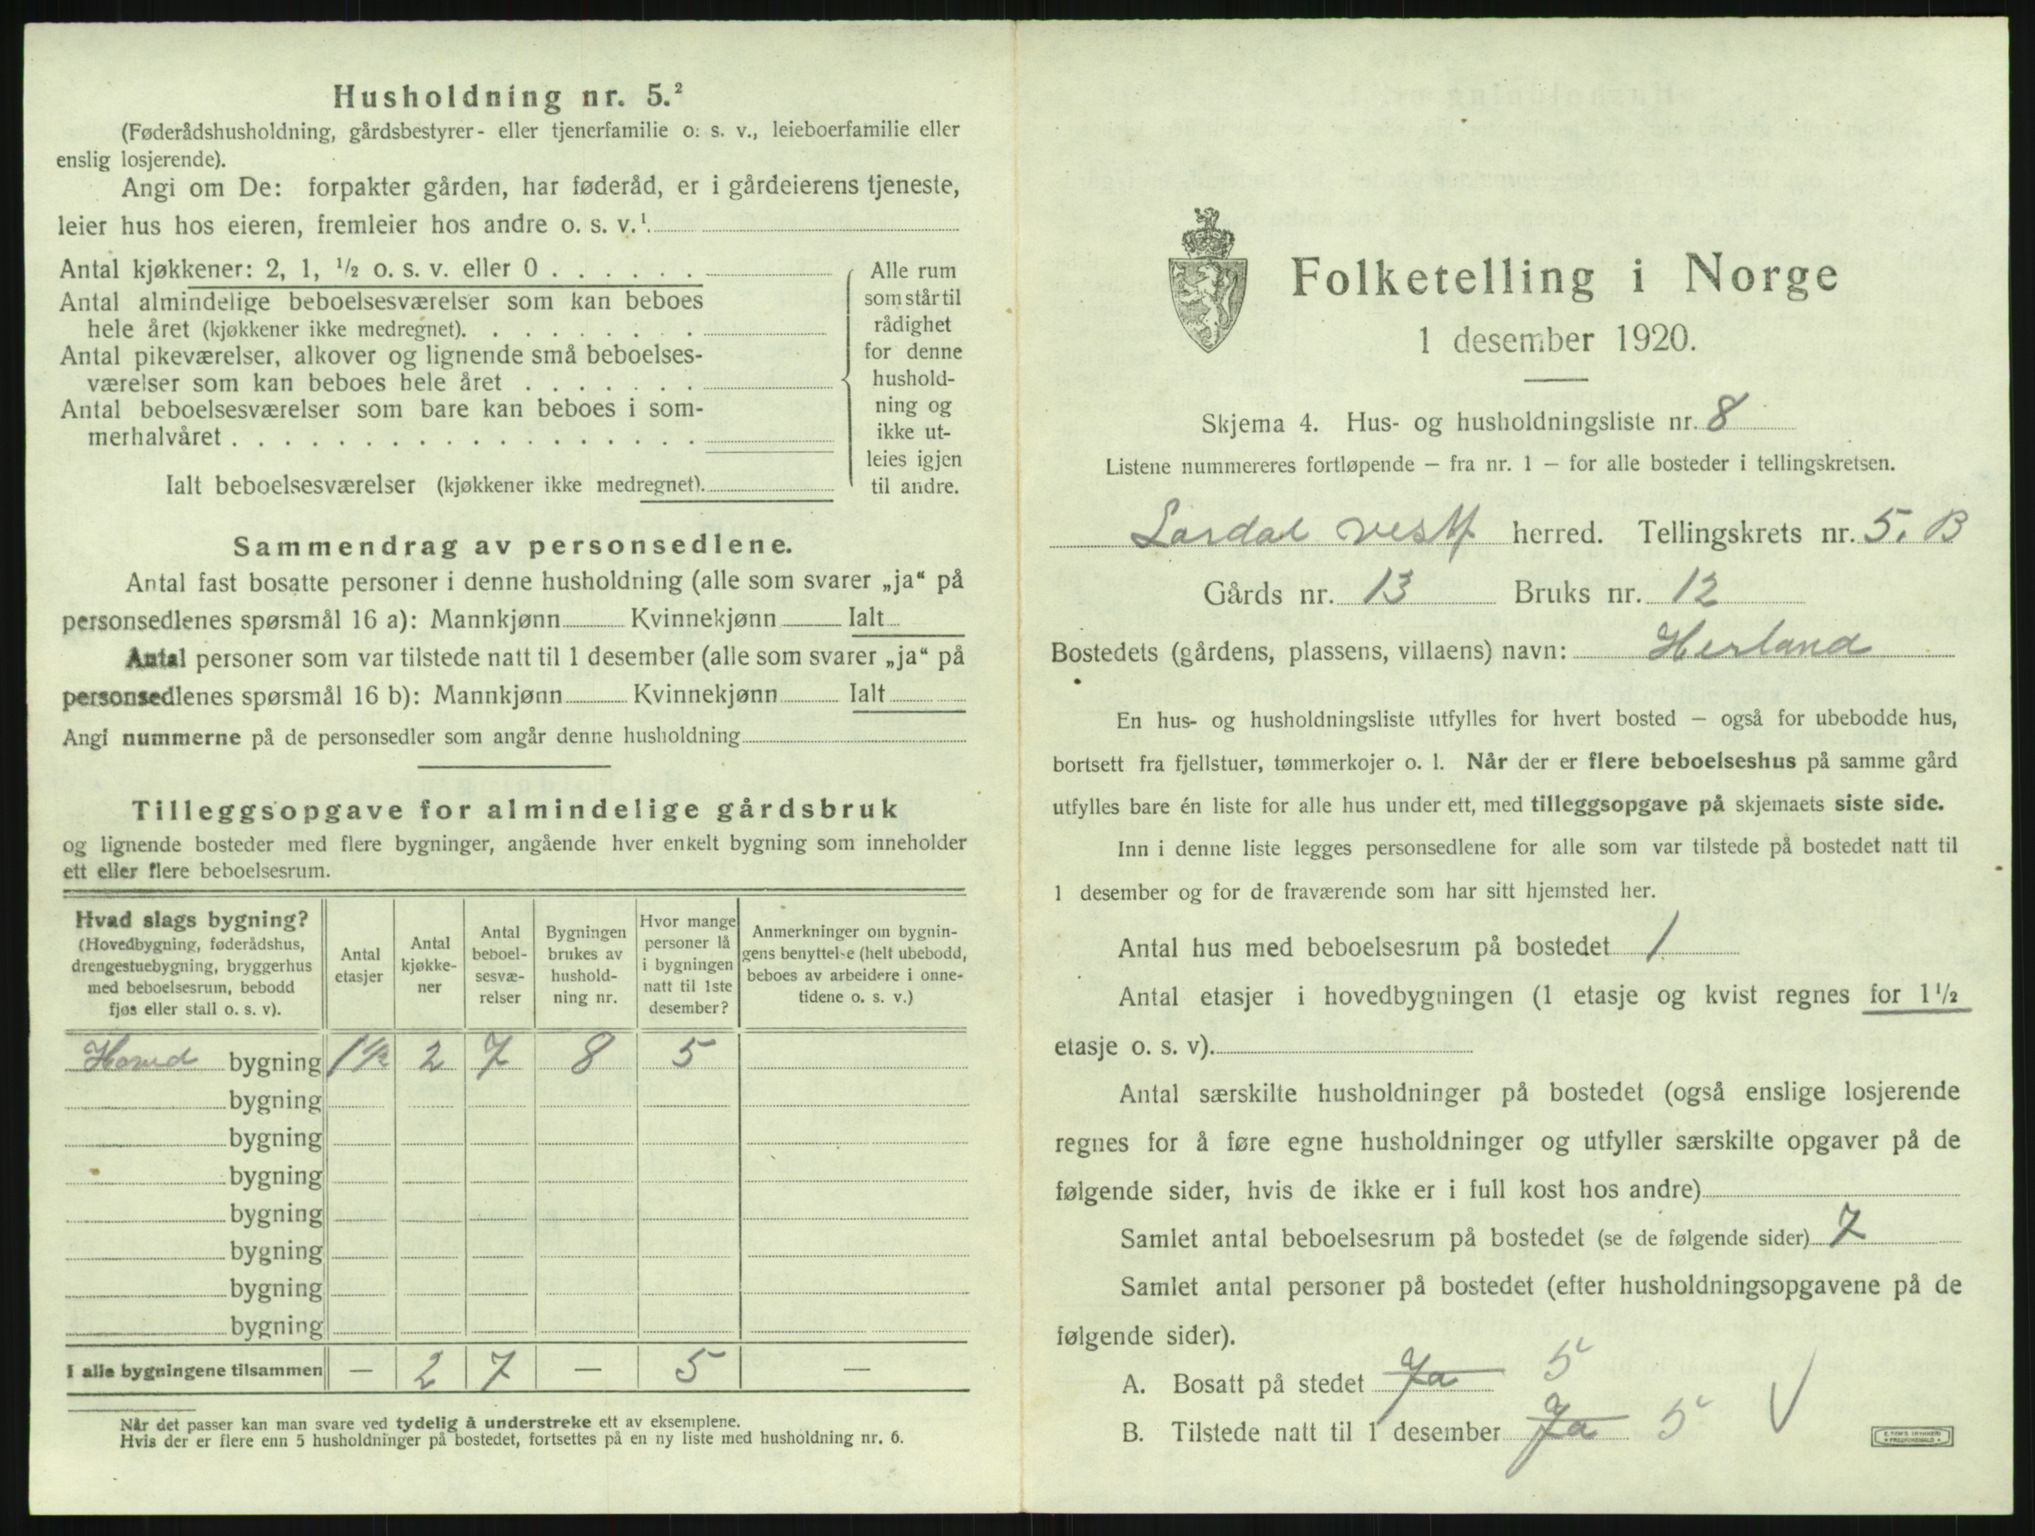 Husholdning nr. 5.²
(Føderådshusholdning, gårdsbestyrer- eller tjenerfamilie o. s. v., leieboerfamilie eller
enslig losjerende).
Angi om De: forpakter gården, har føderåd, er i gårdeierens tjeneste,
leier hus hos eieren, fremleier hos andre o. s. v.¹
Antal kjøkkener: 2, 1, ½ o. s. v. eller 0 . . . . . .
Antal almindelige beboelsesværelser som kan beboes
hele året (kjøkkener ikke medregnet). . . . . . . .
Antal pikeværelser, alkover og lignende små beboelses-
værelser som kan beboes hele året . . . . . . .
Antal beboelsesværelser som bare kan beboes i som-
merhalvåret . . . . . . . . . . . . . . . . . .
Ialt beboelsesværelser (kjøkkener ikke medregnet).
Alle rum
som står til
rådighet
for denne
hushold-
ning og
ikke ut-
leies igjen
til andre.
Sammendrag av personsedlene.
Antal fast bosatte personer i denne husholdning (alle som svarer „ja“ på
personsedlenes spørsmål 16 a): Mannkjønn Kvinnekjønn Ialt
Antal personer som var tilstede natt til 1 desember (alle som svarer „ja“ på
personsedlenes spørsmål 16 b): Mannkjønn Kvinnekjønn Ialt
Angi nummerne på de personsedler som angår denne husholdning
Tilleggsopgave for almindelige gårdsbruk
og lignende bosteder med flere bygninger, angående hver enkelt bygning som inneholder
ett eller flere beboelsesrum.
Hvad slags bygning?
(Hovedbygning, føderådshus,
drengestuebygning, bryggerhus
med beboelsesrum, bebodd
fjøs eller stall o. s. v).
Antal
etasjer
Antal
kjøkke-
ner
Antal
beboel-
sesvæ-
relser
Bygningen
brukes av
hushold-
ning nr.
Hvor mange
personer lå
i bygningen
natt til 1ste
desember?
Anmerkninger om bygnin-
gens benyttelse (helt ubebodd,
beboes av arbeidere i onne-
tidene o. s. v.)
Hoved bygning 1½ 2 7 8 5
bygning
bygning
bygning
bygning
bygning
bygning
bygning
I alle bygningene tilsammen — 2 7 — 5 —
Når det passer kan man svare ved tydelig å understreke ett av eksemplene.
Hvis der er flere enn 5 husholdninger på bostedet, fortsettes på en ny liste med husholdning nr. 6.
Folketelling i Norge
1 desember 1920.
Skjema 4. Hus- og husholdningsliste nr. 8
Listene nummereres fortløpende – fra nr. 1 – for alle bosteder i tellingskretsen.
Lardal vestf herred. Tellingskrets nr. 5. B
Gårds nr. 13 Bruks nr. 12
Bostedets (gårdens, plassens, villaens) navn: Herland
En hus- og husholdningsliste utfylles for hvert bosted – også for ubebodde hus,
bortsett fra fjellstuer, tømmerkojer o. l. Når der er flere beboelseshus på samme gård
utfylles bare én liste for alle hus under ett, med tilleggsopgave på skjemaets siste side.
Inn i denne liste legges personsedlene for alle som var tilstede på bostedet natt til
1 desember og for de fraværende som har sitt hjemsted her.
Antal hus med beboelsesrum på bostedet 1
Antal etasjer i hovedbygningen (1 etasje og kvist regnes for 1½
etasje o. s. v).
Antal særskilte husholdninger på bostedet (også enslige losjerende
regnes for å føre egne husholdninger og utfyller særskilte opgaver på de
følgende sider, hvis de ikke er i full kost hos andre)
Samlet antal beboelsesrum på bostedet (se de følgende sider) 7
Samlet antal personer på bostedet (efter husholdningsopgavene på de
følgende sider).
A. Bosatt på stedet Ja 5
B. Tilstede natt til 1 desember Ja 5